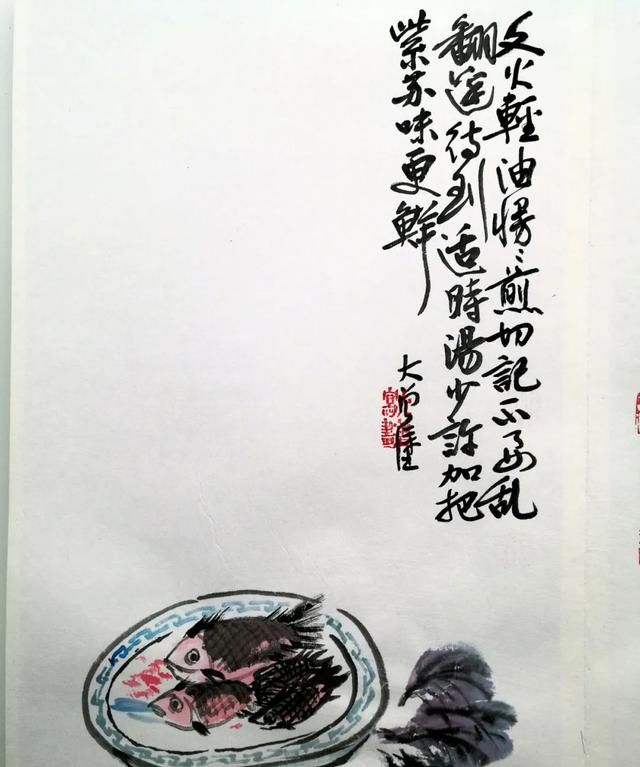 文火輕油慢〻煎切記不要乱
翻邊待到适時湯少許加把
紫苏味更鮮